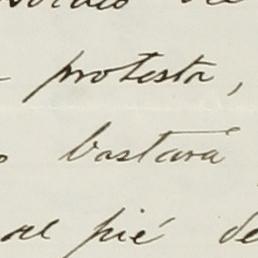 protesta,
bastará
al pié de